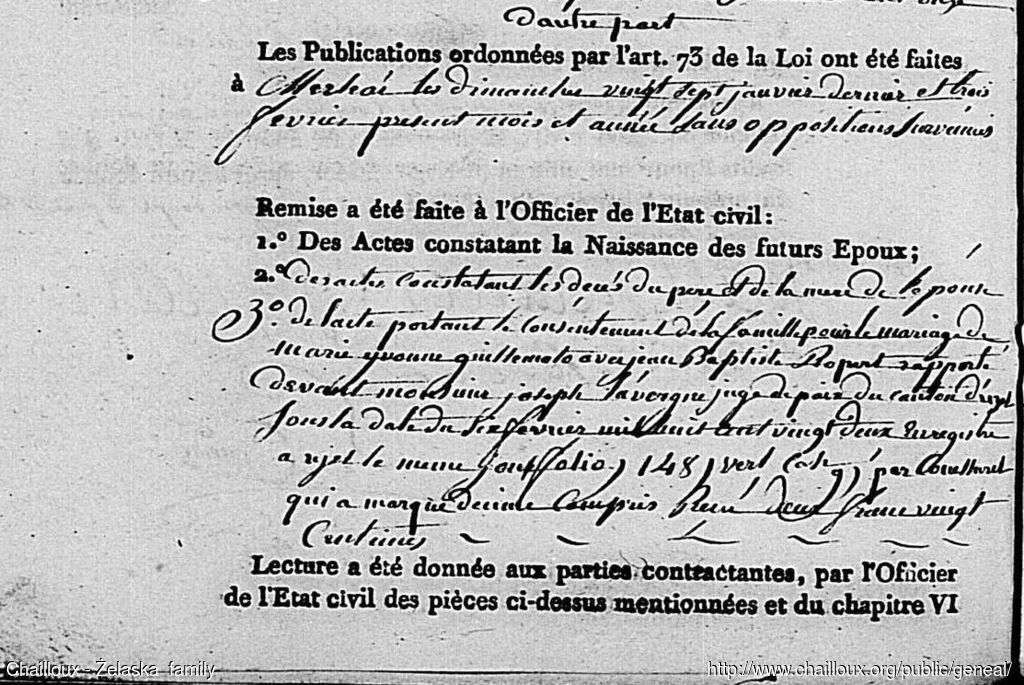 d'autre part
Les Publications ordonnées par l'art. 73 de la Loi ont été faites
à Merléac les dimanches vingt sept janvier dernier et trois
fevrier present mois et année sans oppositions survenues
Remise a été faite à l'Officier de l'Etat civil:
1.º Des Actes constatant la Naissance des futurs Epoux;
2.º des actes constatant les décés du pere et de la mere de l'épouse
3º. de l'acte portant le consentement de la famille pour le mariage de
marie yvonne guillemoto avec jean Baptiste Ropert rapporté
devant monsieur joseph Lavergne juge de paix du canton d'uzel
sous la date du six février mil huit cent vingt deux Enregistré
a uzel le meme jour folio 148 vert Case 9 par
qui a marqué decime Compris Reçu deux franc vingt
Centimes
Lecture a été donnée aux parties contractantes, par l'Officier
de l'Etat civil des pièces ci-dessus mentionnées et du chapitre VI
Chailloux - Żelaska family
http://www.chailloux.org/public/geneal/